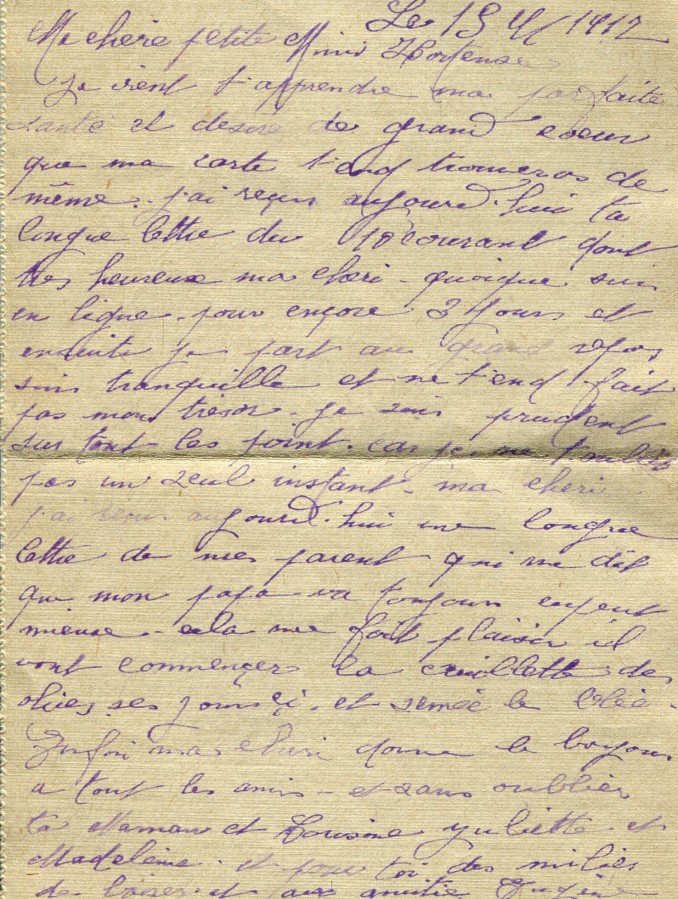 Le 15 1917
Ma chère petite Mimi Hortense
Je vient t'apprendre ma parfaite
santé et desire de grand coeur
que ma carte t'end trouveras de
même. j'ai reçus aujourd'hui ta
longue lettre du 10 courant dont
tres heureux ma cheri - quoique suis
en ligne. pour ençore 3 jours et
ensuite je part au grand repos
sois tranquille et ne t'end fait
pas mon tresor. je suis prudent
sur tout les point. car je ne t'oublis
pas un seul instant. ma cheri
j'ai reçu aujourd'hui une longue
lettre de mes parent qui me dit
que mon papa va toujours
mieux - cela me fait plaisir il
vont commençer la cuillette des
olives ses jours çi. et semée le blée.
Enfin ma cheri donne le bonjour
a tout les amis - et sans oublier
ta Maman et Yuliette et
Madeleine. et pour toi des milies
de baiser et aux amitie Eugène